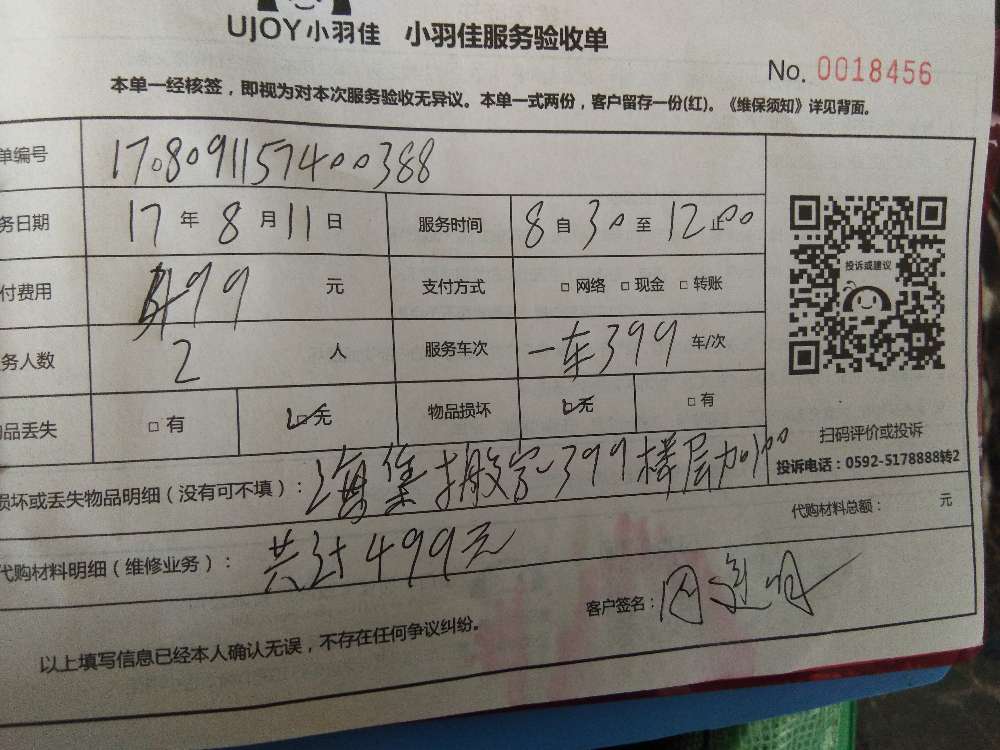 UJOY小羽佳 小羽佳服务验收单
No. 0018456
本单一经核签，即视为对本次服务验收无异议。本单一式两份，客户留存一份(红)。《维保须知》详见背面。
单编号 1708091157400388
务日期 17 年 8 月 11 日 服务时间 8 自 30 至 12 止 00
付费用 499 元 支付方式 □ 网络 □ 现金 □ 转账
务人数 2 人 服务车次 一车399 车/次
品丢失 □ 有 □ 无 物品损坏 □ 无 □ 有
投诉或建议
扫码评价或投诉
投诉电话：0592-5178888转2
损坏或丢失物品明细（没有可不填）： 海集搬家399楼层加100
代购材料总额： 元
代购材料明细（维修业务）： 共计499元
客户签名：
以上填写信息已经本人确认无误，不存在任何争议纠纷。